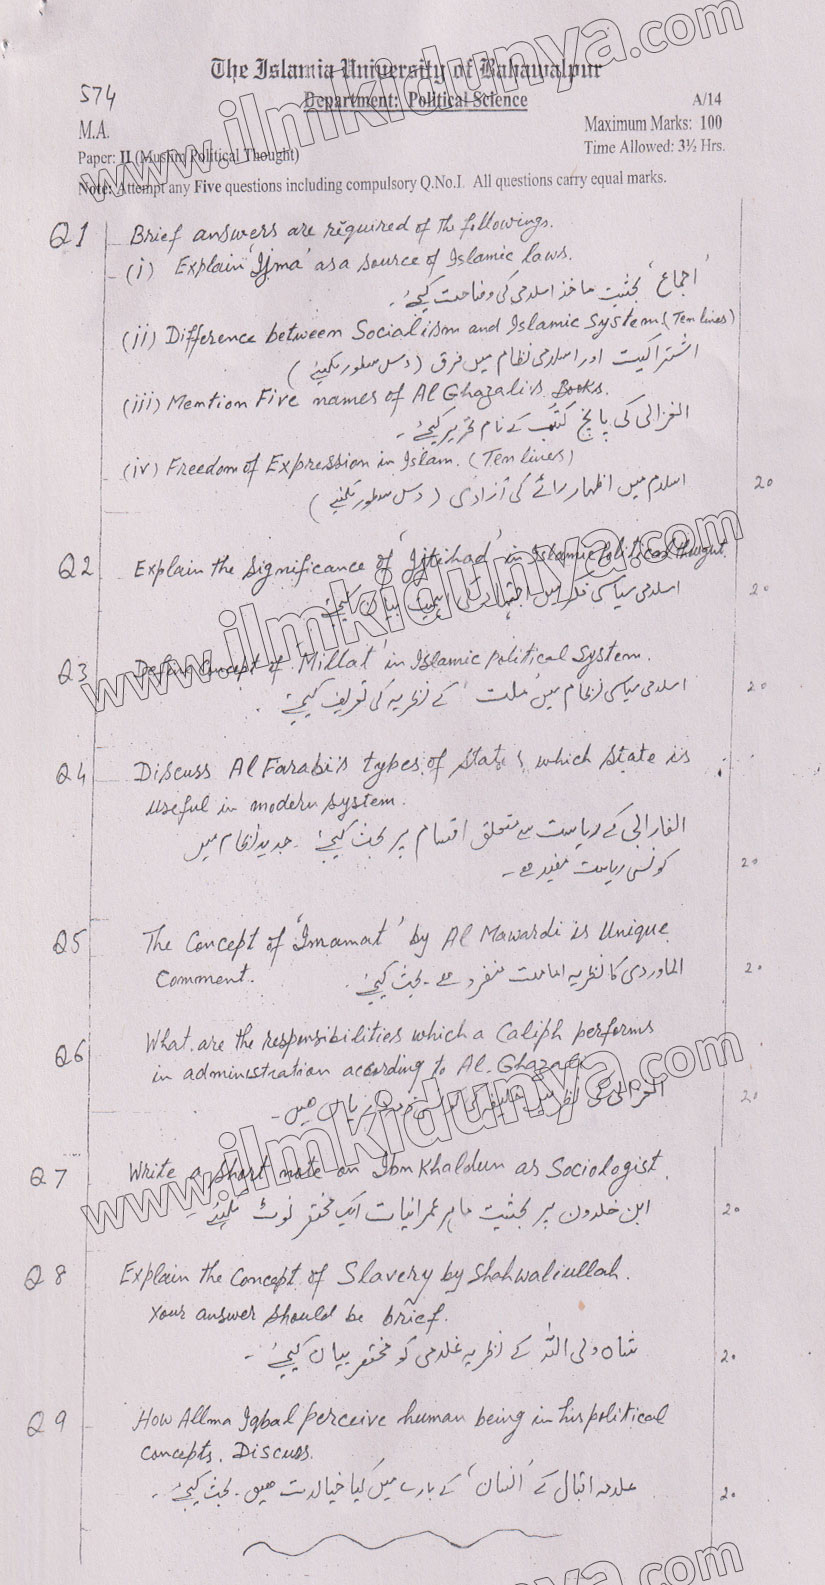 www.ilmkidunya.com
The Islamia University of Bahawalpur
574
Department: Political Science
A/14
M.A.
Maximum Marks: 100
Paper: II (Muslim Political Thought)
Time Allowed: 3½ Hrs.
Note: Attempt any Five questions including compulsory Q.No.I. All questions carry equal marks.
Q1 Brief answers are required of the followings.
(i) Explain 'Ijma' as a source of Islamic laws.
'اجماع' بحثیت ماخذ اسلامی کی وضاحت کیجئے۔
(ii) Difference between Socialism and Islamic System (Ten lines)
اشتراکیت اور اسلامی نظام میں فرق (دس سطور لکھیئے)
(iii) Mention Five names of Al Ghazali's Books.
الغزالی کی پانچ کتب کے نام تحریر کیجئے۔
(iv) Freedom of Expression in Islam. (Ten lines)
اسلام میں اظہار رائے کی آزادی (دس سطور لکھیئے)
20
www.ilmkidunya.com
Q2 Explain the significance of 'Ijtihad' in Islamic Political thought.
اسلامی سیاسی فکر میں اجتہاد کی اہمیت بیان کیجئے
20
Q3 Define Concept of 'Millat' in Islamic political System.
اسلامی سیاسی نظام میں 'ملت' کے نظریہ کی تعریف کیجئے۔
20
Q4 Discuss Al Farabi's types of state, which state is
useful in modern system.
الفارابی کے ریاست سے متعلق اقسام پر بحث کیجئے۔ جدید نظام میں
کونسی ریاست مفید ہے۔
20
Q5 The Concept of 'Imamat' by Al Mawardi is Unique
Comment.
الماوردی کا نظریہ امامت منفرد ہے۔ بحث کیجئے۔
20
Q6 What are the responsibilities which a Caliph performs
in administration according to Al. Ghazali
الغزالی کی ہیں۔
20
www.ilmkidunya.com
Q7 Write a short note on Ibn Khaldun as Sociologist.
ابن خلدون پر بحثیت ماہر عمرانیات ایک مختصر نوٹ لکھیئے۔
20
Q8 Explain the Concept of Slavery by Shahwaliullah.
Your answer should be brief.
شاہ ولی اللہ کے نظریہ غلامی کو مختصر بیان کیجئے۔
20
Q9 How Allma Iqbal perceive human being in his political
concepts. Discuss.
علامہ اقبال کے 'انسان' کے بارے میں کیا خیالات ہیں۔ بحث کیجئے۔
20
www.ilmkidunya.com